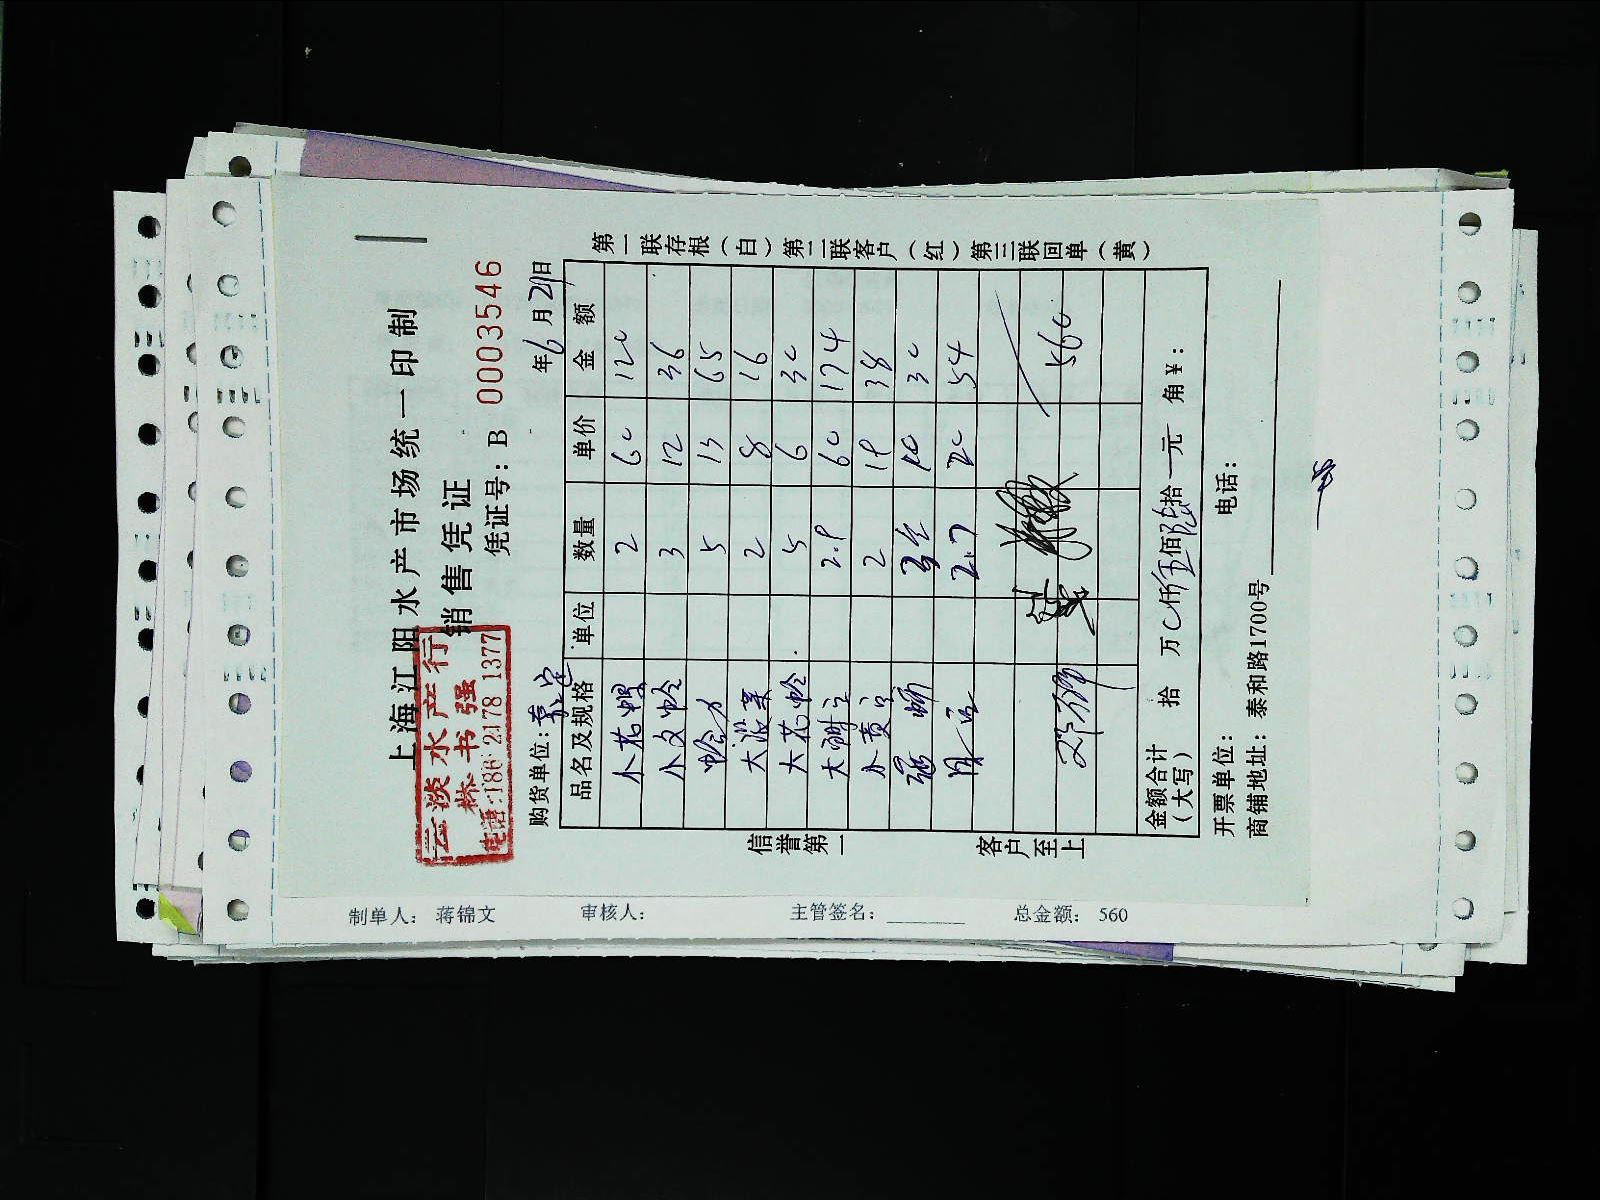 上海江阳水产市场统一印制
销售凭证
凭证号：B 0003546
云淡水产行
林书强
电话:186 2178 1377
购货单位：
年6月29日
品名及规格 单位 数量 单价 金额
小花螺 2 60 120
小文蛤 3 12 36
5 13 65
2 8 16
大花蛤 5 6 30
2.9 60 174
2 19 38
10 30
2.7 20 54
560
金额合计（大写） 拾 万 仟伍佰陆拾 元 角¥：
开票单位： 电话：
商铺地址：泰和路1700号
第一联存根（白）第二联客户（红）第三联回单（黄）
信誉第一
客户至上
制单人： 蒋锦文 审核人： 主管签名： 总金额： 560